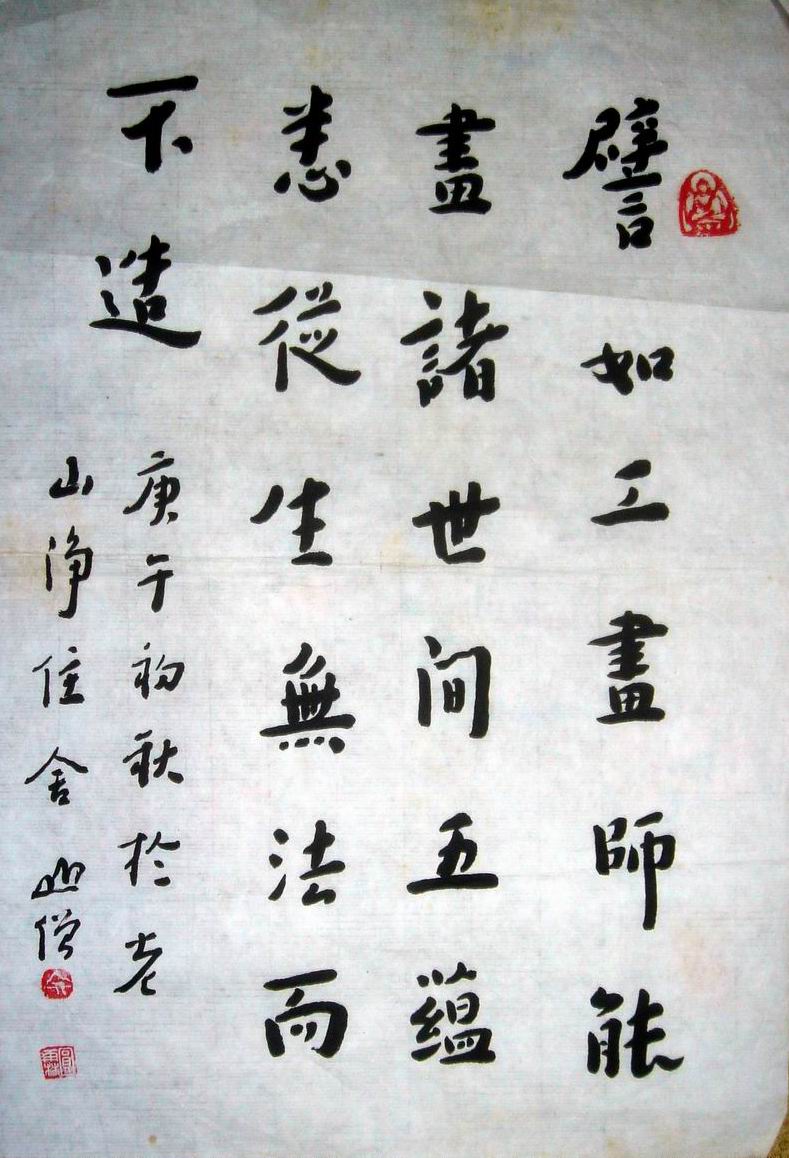 譬如工畫師能
畫諸世间五蘊
悉從生無法而
不造
庚午初秋於老
山淨住舍 僧
圓霖